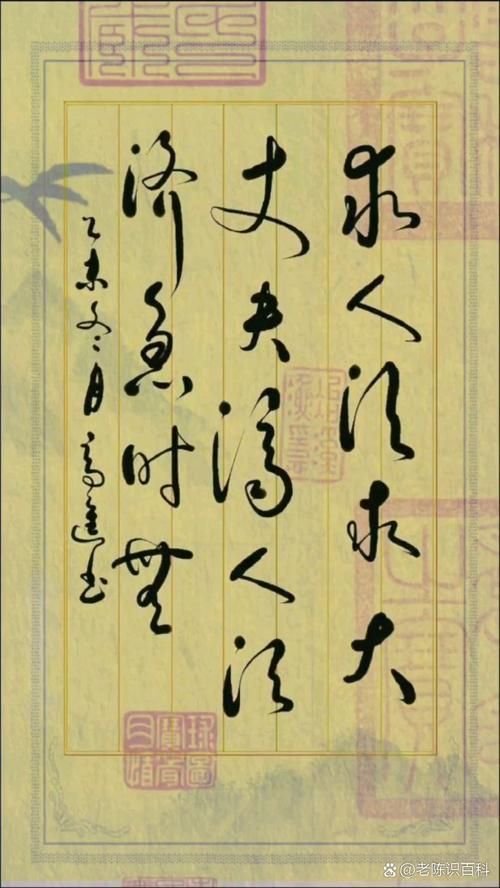 求人须求大
丈夫济人须
济急时无
乙未冬月高进书
@老陈识百科